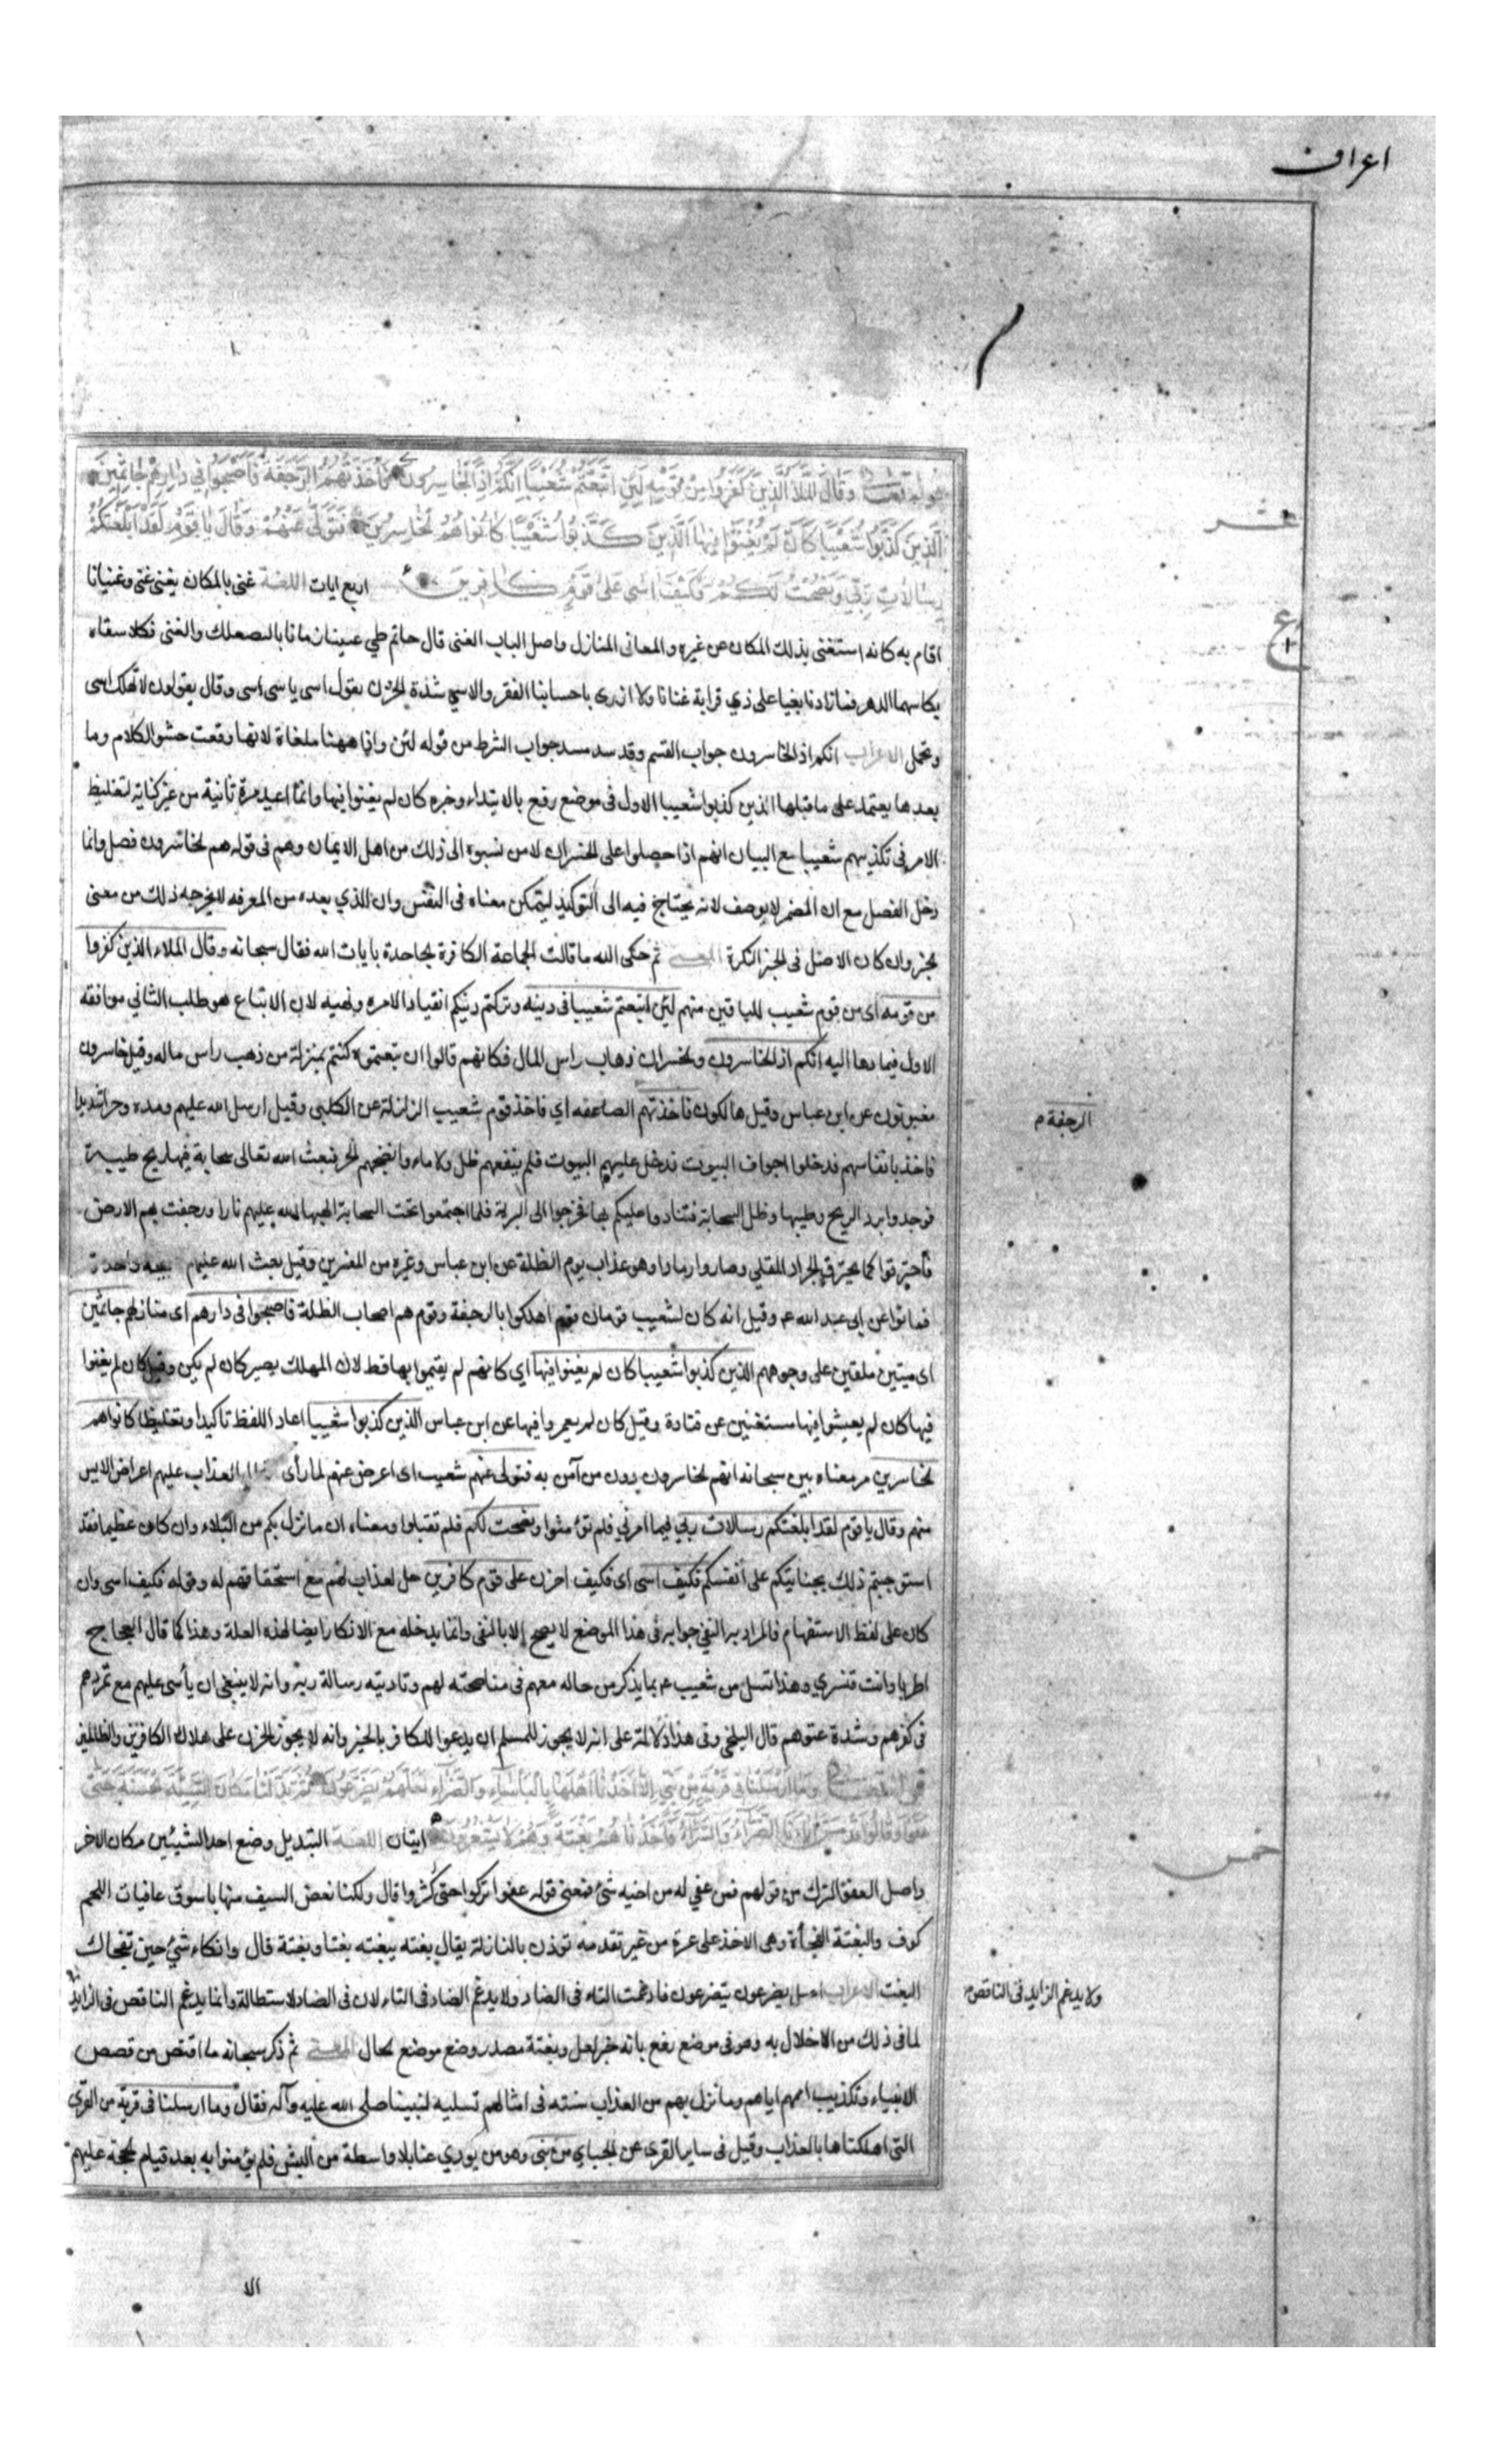 اعراف
قوله تعالى وَقَالَ الْمَلَأُ الَّذِينَ كَفَرُوا مِنْ قَوْمِهِ لَئِنِ اتَّبَعْتُمْ شُعَيْبًا إِنَّكُمْ إِذًا لَخَاسِرُونَ فَأَخَذَتْهُمُ الرَّجْفَةُ فَأَصْبَحُوا فِي دَارِهِمْ جَاثِمِينَ
عشر
الَّذِينَ كَذَّبُوا شُعَيْبًا كَأَنْ لَمْ يَغْنَوْا فِيهَا الَّذِينَ كَذَّبُوا شُعَيْبًا كَانُوا هُمُ لْخَاسِرِينَ فَتَوَلَّى عَنْهُمْ وَقَالَ يَا قَوْمِ لَقَدْ أَبْلَغْتُكُمْ
رِسَالَاتِ رَبِّي وَنَصَحْتُ لَكُمْ فَكَيْفَ اسَى عَلَى قَوْمٍ كَافِرِينَ اربع ايات اللغة غنى بالمكان يغنى غنى وغنيانا
ع
اقام به كانه استغنى بذلك المكان عن غيره والمعانى المنازل واصل الباب الغنى قال حاتم طي عنينا زمانا بالتصعلك والغنى فكلا سقاه
بكاسيهما الدهر فما زادنا بغيا على ذي قرابة غنانا ولا ازرى باحسابنا الفقر والاسى شدة الحزن يقول اسى ياسى اسى وقال يقولون لا تهلك اسى
وتحمل الاعراب انكم اذا لخاسرون جواب القسم وقد سد مسد جواب الشرط من قوله لئن واذا ههنا ملغاة لانها وقعت حشو الكلام وما
بعدها يعتمد على ما قبلها الذين كذبوا شعيبا الاول فى موضع رفع بالابتداء وخبره كان لم يغنوا فيها وانما اعيد مرة ثانية من غير كناية لتغليظ
الامر فى تكذيبهم شعيبا مع البيان انهم اذا حصلوا على الخسران لا من نسبوه الى ذلك من اهل الايمان وهم فى قوله هم لخاسرون فصل وانما
دخل الفصل مع ان المضمر لا يوصف لانه يحتاج فيه الى التوكيد ليتمكن معناه فى النفس وان الذي بعده من المعرفه لا يخرجه ذلك من معنى
لخبر وان كان الاصل فى الخبر النكرة المعنى ثم حكى الله ما قالت الجماعة الكافرة الجاحدة بايات الله فقال سبحانه وقال الملاء الذين كفروا
من قومه اى من قوم شعيب للباقين منهم لئن اتبعتم شعيبا فى دينه وتركتم دينكم انقيادا لامره ونهيه لان الاتباع هو طلب الثانى موافقه
الاول فيما دعا اليه انكم اذا لخاسرون ولخسران ذهاب راس المال فكانهم قالوا ان تبعتموه كنتم بمنزلة من ذهب راس ماله وقيل خاسرون
مغبونون عن ابن عباس وقيل هالكون فاخذتهم الصاعقه اي فاخذ قوم شعيب الزلزلة عن الكلبى وقيل ارسل الله عليهم ومده وحرا شديدا
الرجفة م
فاخذ بانفاسهم فدخلوا اجواف البيوت فدخل عليهم البيوت فلم ينفعهم ظل ولا ماء وانضجهم الحر فبعث الله تعالى سحابة فيها ريح طيبة
فوجدوا برد الريح وطيبها وظل السحابة فتنادوا عليكم بها فخرجوا الى البرية فلما اجتمعوا تحت السحابة الهبها الله عليهم نارا ورجفت بهم الارض
فاحترقوا كما يحترق الجراد المقلي وصاروا رمادا وهو عذاب يوم الظلة عن ابن عباس وغيره من المفسرين وقيل بعث الله عليهم صيحة واحدة
فماتوا عن ابى عبد الله ع وقيل انه كان لشعيب قومان قوم اهلكوا بالرجفة وقوم هم اصحاب الظلة فاصبحوا فى دارهم اى منازلهم جاثمين
اى ميتين ملقين على وجوههم الذين كذبوا شعيبا كان لم يغنوا فيها اي كانهم لم يقيموا بها قط لان المهلك يصير كان لم يكن وقيل كان لم يغنوا
فيها كان لم يعيشوا فيها مستغنين عن قتادة وقيل كان لم يعمروا فيها عن ابن عباس الذين كذبوا شعيبا اعاد اللفظ تاكيدا وتغليظا كانوا هم
لخاسرين مر معناه بين سبحانه انهم لخاسرون دون من آمن به فتولى عنهم شعيب اى اعرض عنهم لما رأى العذاب عليهم اعراض الايس
منهم وقال يا قوم لقد ابلغتكم رسالات ربي فيما امرني فلم تؤمنوا ونصحت لكم فلم تقبلوا ومعناه ان ما نزل بكم من البلاء وان كان عظيما فقد
استوجبتم ذلك بجنايتكم على انفسكم فكيف اسى اى فكيف احزن على قوم كافرين حل لعذاب لهم مع استحقاقهم له وقوله فكيف اسى وان
كان على لفظ الاستفهام فالمراد به النفي جوابه فى هذا الموضع لا يصح إلا بالنفى وانما يدخله مع الانكار ايضا لهذه العلة وهذا كما قال العجاج
اطربا وانت قنسري وهذا تسل من شعيب ع بما يذكر من حاله معهم فى مناصحته لهم وتاديته رسالة ربه وانه لا ينبغى ان يأسى عليهم مع تمردهم
فى كفرهم وشدة عتوهم قال البلخى وفى هذا دلالة على انه لا يجوز للمسلم ان يدعوا للكافر بالخير وانه لا يجوز الحزن على هلاك الكافرين والظالمين
قوله تعالى وَمَا أَرْسَلْنَا فِي قَرْيَةٍ مِنْ نَبِيٍّ إِلَّا أَخَذْنَا أَهْلَهَا بِالْبَأْسَاءِ وَالضَّرَّاءِ لَعَلَّهُمْ يَضَّرَّعُونَ ثُمَّ بَدَّلْنَا مَكَانَ السَّيِّئَةِ الْحَسَنَةَ حَتَّى
عَفَوْا وَقَالُوا قَدْ مَسَّ آبَاءَنَا الضَّرَّاءُ وَالسَّرَّاءُ فَأَخَذْنَاهُمْ بَغْتَةً وَهُمْ لَا يَشْعُرُونَ ايتان اللغة التبديل وضع احد الشيئين مكان الاخر
خمس
واصل العفو الترك من قولهم فمن عفي له من اخيه شئ فمعنى قوله عفوا تركوا حتى كثروا قال ولكنا نعض السيف منها باسوق عافيات اللحم
كوف والبغتة الفجأة وهى الاخذ على غرة من غير تقدمه توذن بالنازلة يقال بغته يبغته بغتا وبغتة قال وانكاء شئ حين تفجاك
البغت الاعراب اصل يضرعون يتضرعون فادغمت التاء فى الضاد ولا يدغم الضاد فى التاء لان فى الضاد استطالة وانما يدغم الناقص فى الزايد
ولا يدغم الزايد فى الناقص
لما فى ذلك من الاخلال به وهو فى موضع رفع بانه خبر لعل وبغتة مصدر وضع موضع لحال المعنى ثم ذكر سبحانه ما اقتص من قصص
الانبياء وتكذيب اممهم اياهم وما نزل بهم من العذاب سنته فى امثالهم تسلية لنبينا صلى الله عليه وآله فقال وما ارسلنا فى قرية من القرى
التى اهلكناها بالعذاب وقيل فى ساير القرى عن الجبايي من نبى وهو من يودي عنا بلا واسطة من البشر فلم يؤمنوا به بعد قيام لحجة عليهم
الا